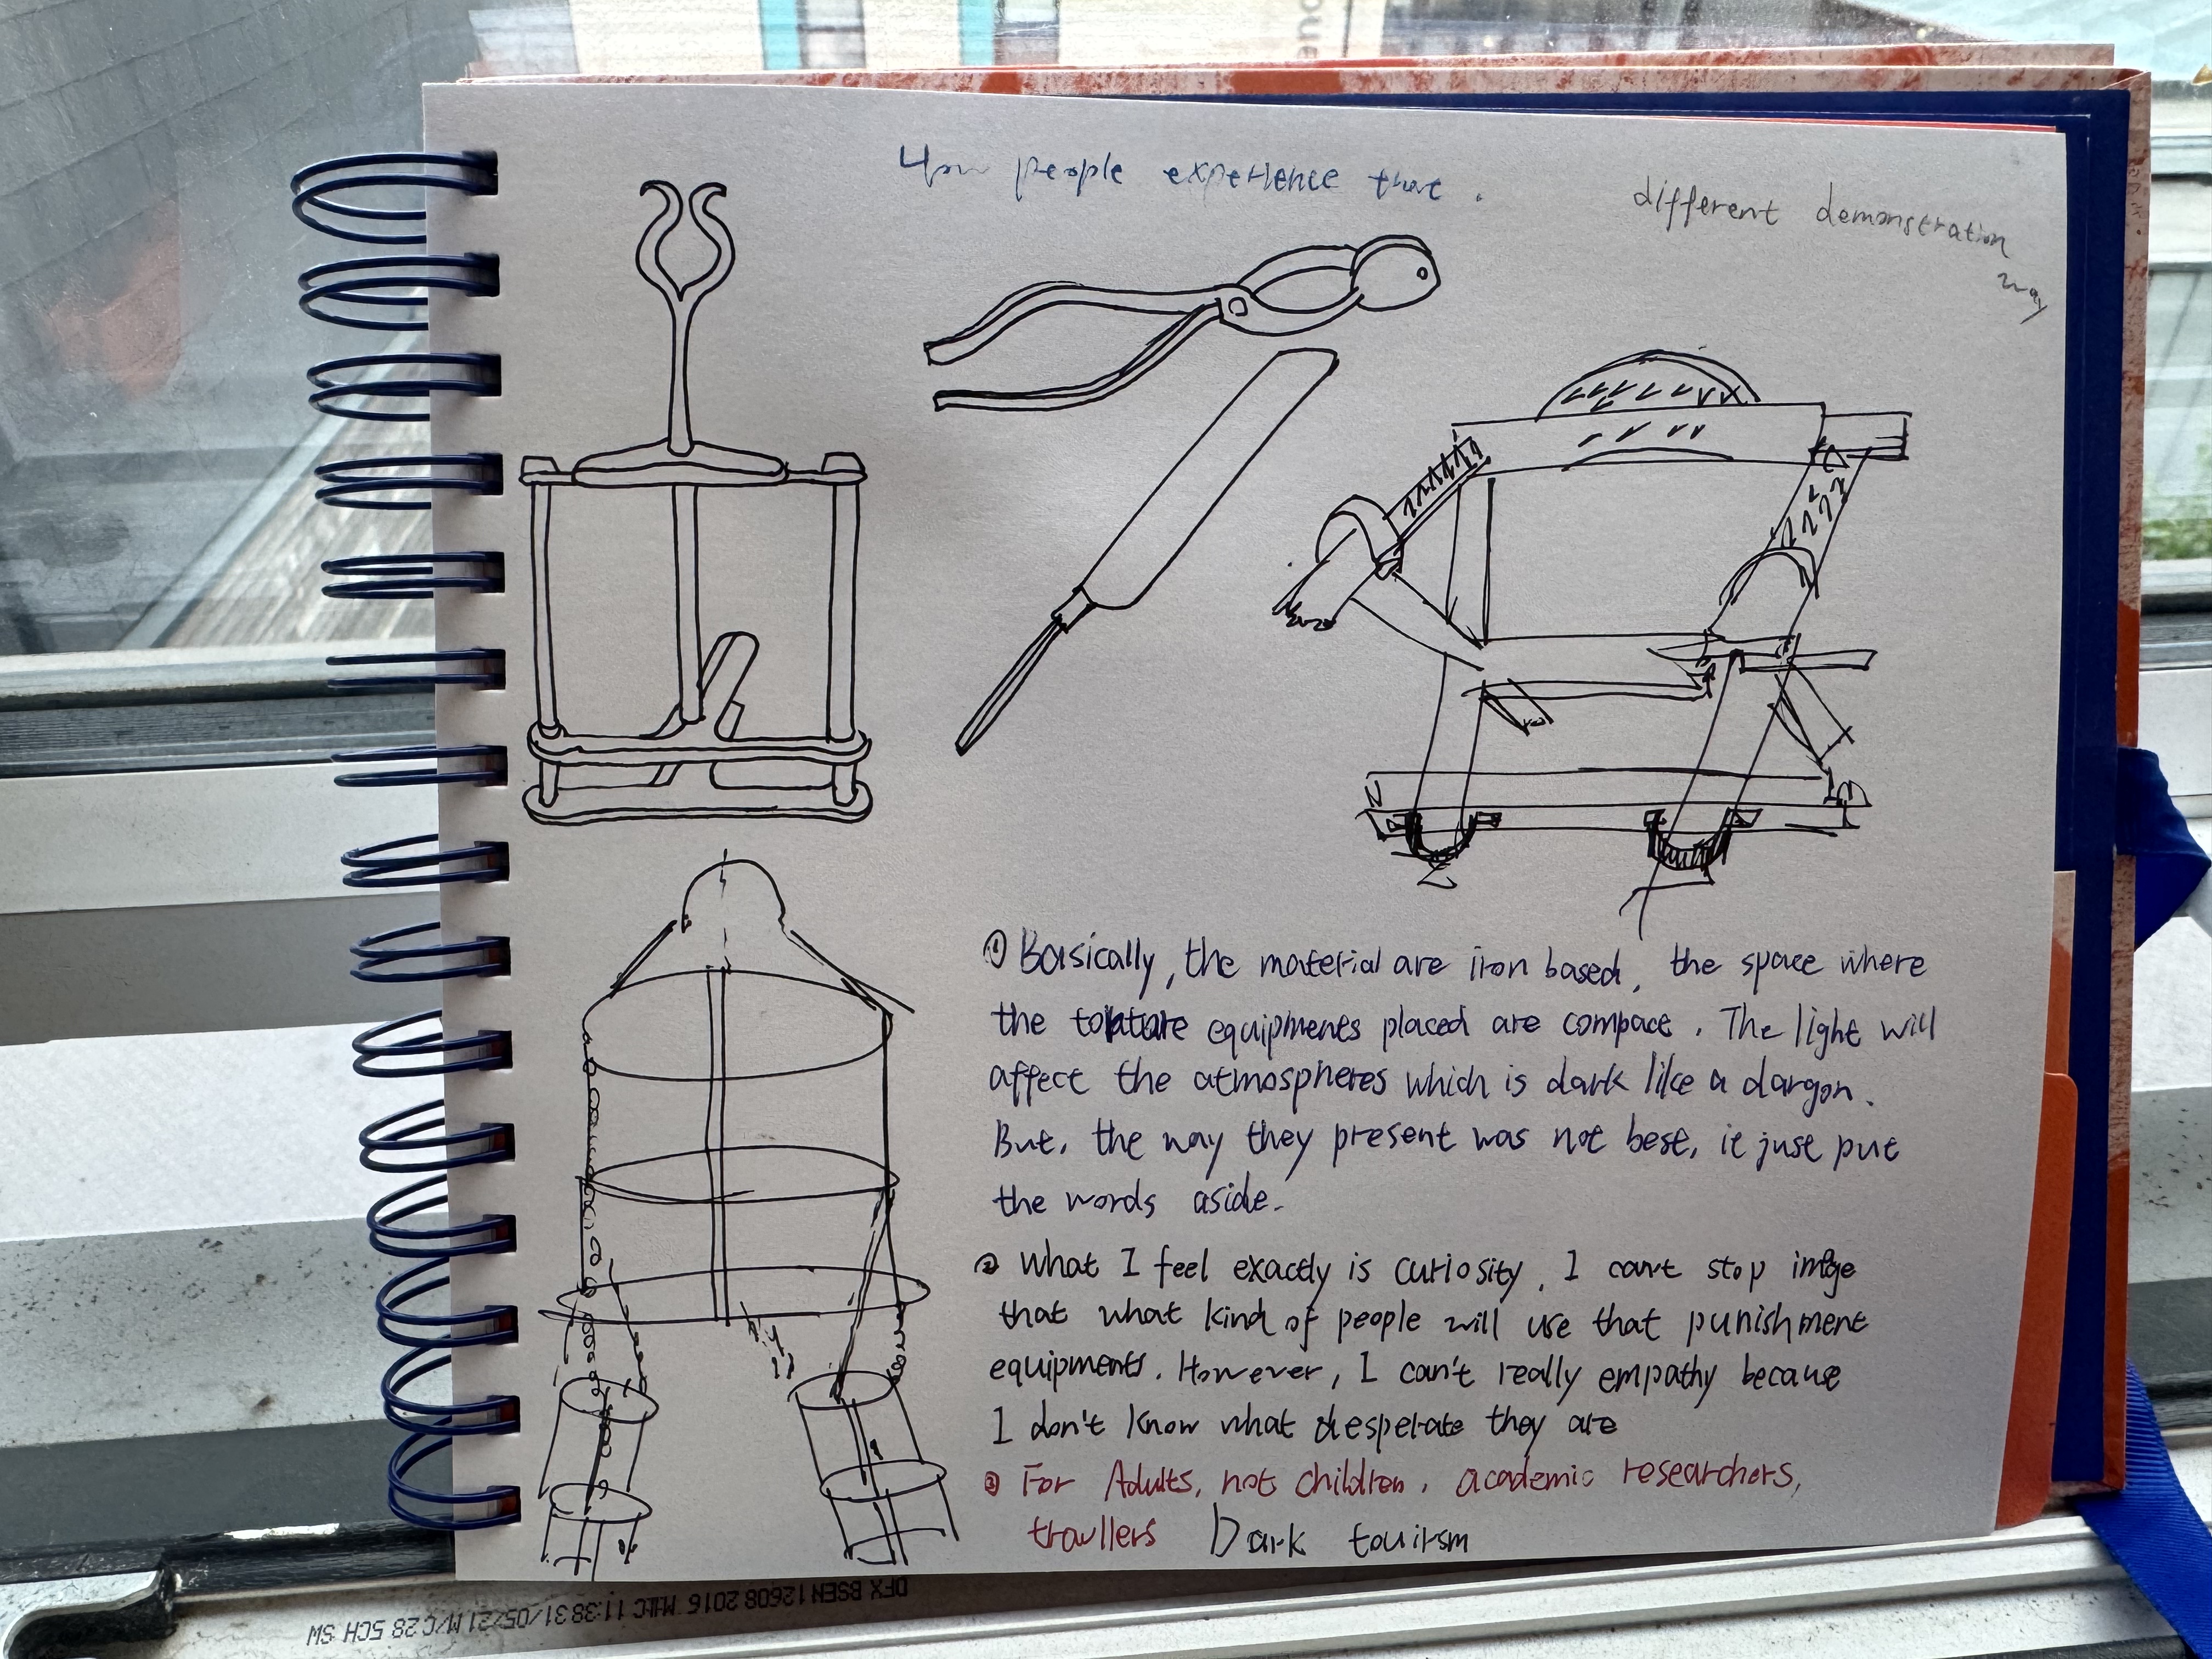 How people experience that.
different demonstration
way
① Basically, the material are iron based, the space where
the torture equipments placed are compace. The light will
affect the atmospheres which is dark like a dargon.
But, the way they present was not best, it just put
the words aside.
② What I feel exactly is curiosity, I can't stop image
that what kind of people will use that punishment
equipments. However, I can't really empathy because
I don't know what desperate they are
③ For Adults, not children, academic researchers,
travllers Dark touirsm
DFX BSEN12608 2016 MHLC 11:38 31/05/21 M/C 28 5CH SW